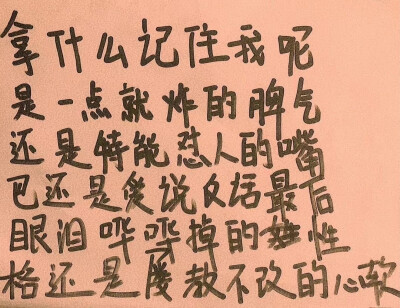 拿什么记住我呢
是一点就炸的脾气
还是特能怼人的嘴
巴还是爱说反话最后
眼泪哗哗掉的性
格还是屡教不改的心软